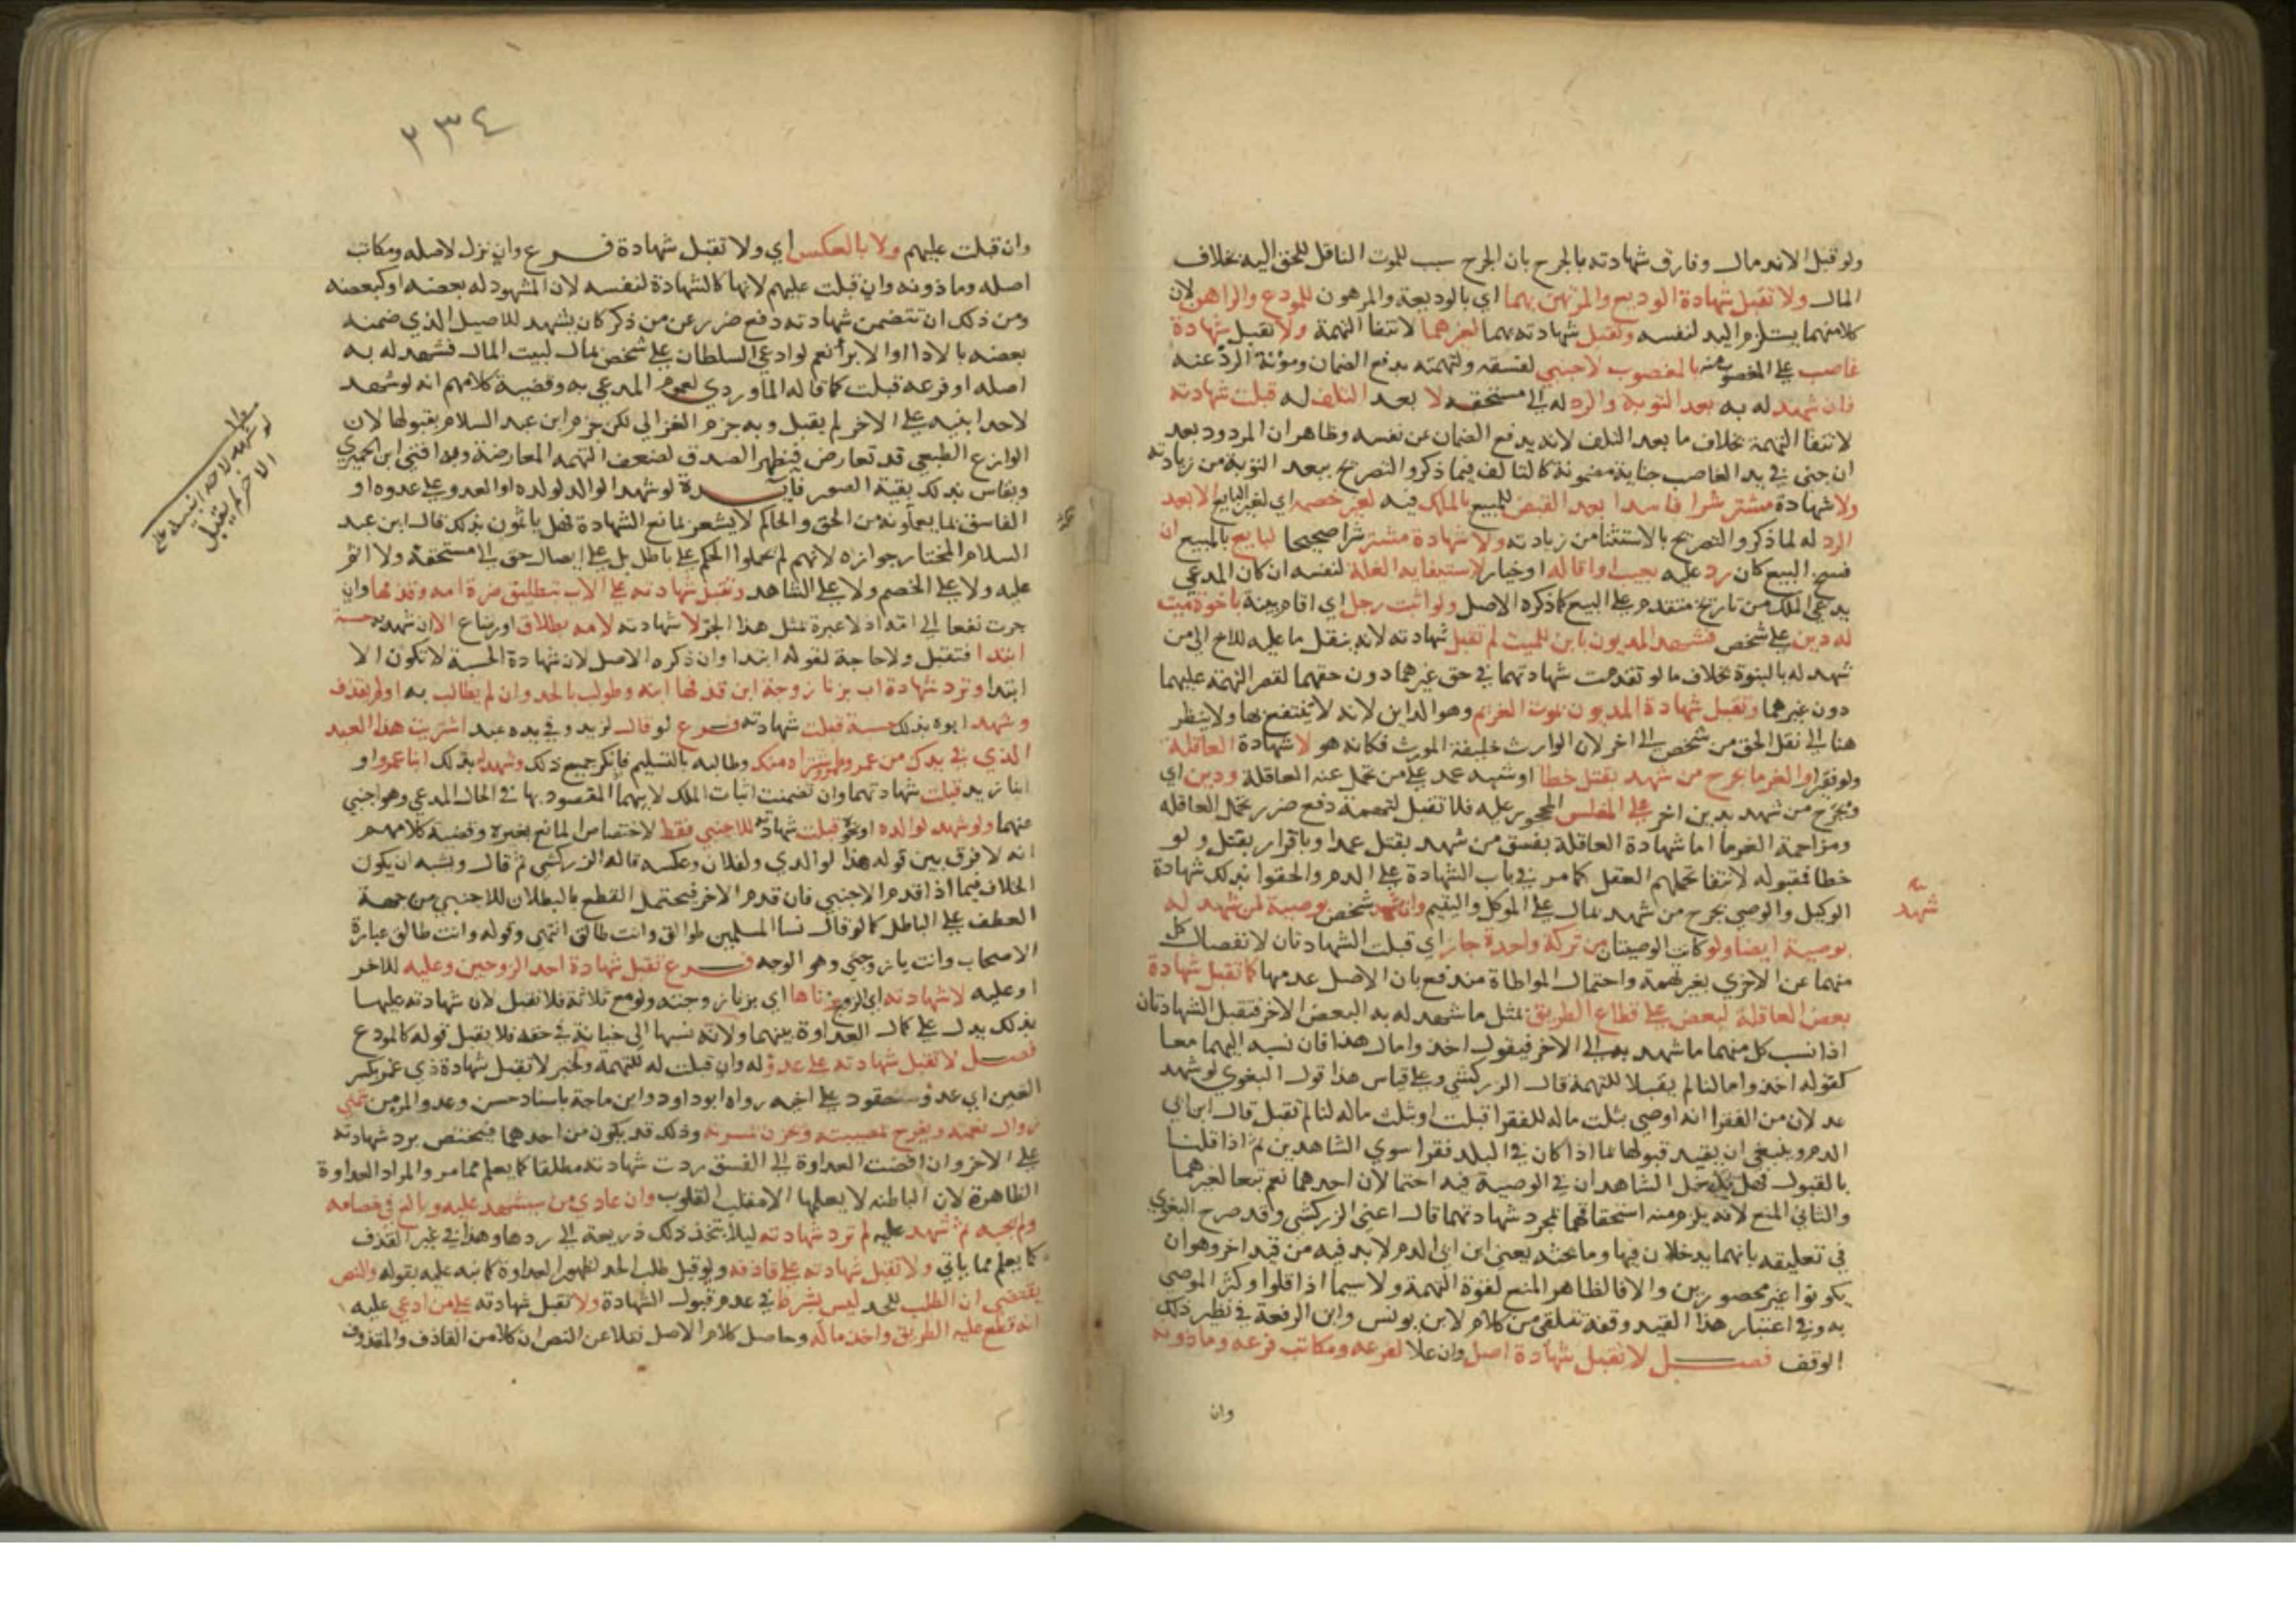 ولو قبل الاندمال وفارق شهادته بالجرح بان الجرح سبب للموت الناقل للحق اليه بخلاف
المال ولا تقبل شهادة الوديع والمرتهن بهما اي بالوديعة والمرهون للمودع والراهن لان
كلا منهما يستلزم اليد لنفسه وتقبل شهادته بهما لغيرهما لانتفا التهمة ولا تقبل شهادة
غاصب على المغصوب منه بالمغصوب لاجنبي لفسقه ولتهمته بدفع الضمان ومؤنة الرد عنه
فان شهد له به بعد التوبة والرد له الى مستحقه لا بعد التلف له قبلت شهادته
لانتفا التهمة بخلاف ما بعد التلف لانه يدفع الضمان عن نفسه وظاهر ان المردود بعد
ان جنى في يد الغاصب جناية مضمونة كالتالف فيما ذكر والتصريح ببعد التوبة من زيادته
ولا شهادة مشتر شرا فاسدا بعد القبض للمبيع بالملك فيه لغير خصمه اي لغير البايع الا بعد
الرد له لما ذكر والتصريح بالاستثنا من زيادته ولا شهادة مشتر شرا صحيحا لبايع بالمبيع ان
فسخ البيع كان رد عليه بعيب او اقاله او خيار لاستبقايه الغلة لنفسه ان كان المدعي
يدعي الملك من تاريخ متقدم على البيع كما ذكره الاصل ولو اثبت رجل اي اقام بينة باخوة ميت
له دين على شخص فشهد المديون بابن للميت لم تقبل شهادته لانه ينقل ما عليه للاخ الى من
شهد له بالبنوة بخلاف ما لو تقدمت شهادتهما في حق غيرهما دون حقهما لقصر التهمة عليهما
دون غيرهما وتقبل شهادة المديون بموت الغريم وهو الداين لانه لا ينتفع بها ولا ينظر
هنا الى نقل الحق من شخص الى اخر لان الوارث خليفة المورث فكانه هو لا شهادة العاقلة
ولو فقرا والغرما بجرح من شهد بقتل خطا او شبه عمد على من تحمل عنه العاقلة ودين اي
وبجرح من شهد بدين اخر على المفلس المحجور عليه فلا تقبل لتهمة دفع ضرر تحمل العاقله
ومزاحمة الغرما اما شهادة العاقلة بفسق من شهد بقتل عمدا وباقرار بقتل ولو
خطا فمقبوله لانتفا تحملهم العقل كما مر في باب الشهادة على الدم والحقوا بذلك شهادة
الوكيل والوصي بجرح من شهد بمال على الموكل واليتيم وان شهد شخص بوصية لمن شهد له
بوصية ايضا ولو كانت الوصيتان من تركة واحدة جاز اي قبلت الشهادتان لانفصال كل
منهما عن الاخري بغير تهمة واحتمال المواطاة مندفع بان الاصل عدمها كما تقبل شهادة
بعض القافلة لبعض على قطاع الطريق بمثل ما شهد له به البعض الاخر فتقبل الشهادتان
اذا نسب كل منهما ما شهد به الى الاخر فيقول اخذوا مال هذا فان نسبه اليهما معا
كقوله اخذوا مالنا لم يقبلا للتهمة قال الزركشي وعلى قياس هذا قول البغوي لو شهد
عدلان من الفقرا انه اوصي بثلث ماله للفقرا قبلت او بثلث ماله لنا لم تقبل قال ابن ابي
الدم وينبغي ان يقيد قبولها بما اذا كان في البلد فقرا سوي الشاهدين ثم اذا قلنا
بالقبول فهل يدخل الشاهدان في الوصية فيه احتمالان احدهما نعم تبعا لغيرهما
والثاني المنع لانه يلزم منه استحقاقهما بمجرد شهادتهما قال اعني الزركشي وقد صرح البغوي
في تعليقه بانهما يدخلان فيها وما بحثه يعني ابن ابي الدم لا بد فيه من قيد اخر وهو ان
يكونوا غير محصورين والا فالظاهر المنع لقوة التهمة ولا سيما اذا قلوا وكثر الموصي
به وفي اعتبار هذا القيد وقفة تتلقى من كلام لابن يونس وابن الرفعة في نظير ذلك
الوقف فصل لا تقبل شهادة اصل وان علا لفرعه ومكاتب فرعه وماذونه
وان
شهد
٢٣٤
وان قبلت عليهم ولا بالعكس اي ولا تقبل شهادة فرع وان نزل لاصله ومكاتب
اصله وماذونه وان قبلت عليهم لانها كالشهادة لنفسه لان المشهود له بعضه او كبعضه
ومن ذلك ان تتضمن شهادته دفع ضرر عن من ذكر كان يشهد للاصيل الذي ضمنه
بعضه بالادا او الابرا نعم لو ادعي السلطان على شخص بمال لبيت المال فشهد له به
اصله او فرعه قبلت كما قاله الماوردي لعموم المدعي به وقضية كلامهم انه لو شهد
لاحد ابنيه على الاخر لم يقبل وبه جزم الغزالي لكن جزم ابن عبد السلام بقبولها لان
الوازع الطبعي قد تعارض فيظهر الصدق لضعف التهمة المعارضة وبه افتي ابن الحميري
ويقاس بذلك بقية الصور فايدة لو شهد الوالد لولده او العدو على عدوه او
الفاسق بما يعلمونه من الحق والحاكم لا يشعر بمانع الشهادة فهل ياثمون بذلك قال ابن عبد
السلام المختار جوازه لانهم لم يحملوا الحاكم على باطل بل على ايصال حق الى مستحقه ولا اثم
عليه ولا على الخصم ولا على الشاهد وتقبل شهادته على الاب بتطليق ضرة امه وقذفها وان
جرت نفعا الى امه اذ لا عبرة بمثل هذا الجر لا شهادته لامه بطلاق او رضاع الا ان شهد به حسبة
ابتدا فتقبل ولا حاجة لقوله ابتدا وان ذكره الاصل لان شهادة الحسبة لا تكون الا
ابتدا وترد شهادة اب بزنا زوجة ابن قذفها ابنه وطولب بالحد وان لم يطالب به او لم يقذف
وشهد ابوه بذلك حسبة قبلت شهادته فرع لو قال لزيد وفي يده عبد اشتريت هذا العبد
الذي في يدك من عمرو وعمرو اشتراه منك وطالبه بالتسليم فانكر جميع ذلك وشهد له بذلك ابنا عمرو او
ابنا زيد قبلت شهادتهما وان تضمنت اثبات الملك لابيهما المقصود بها في الحال المدعي وهو اجنبي
عنهما ولو شهد لوالده او نحوه قبلت شهادته للاجنبي فقط لاختصاص المانع بغيره وقضية كلامهم
انه لا فرق بين قوله هذا لوالدي ولفلان وعكسه قاله الزركشي ثم قال ويشبه ان يكون
الخلاف فيما اذا قدم الاجنبي فان قدم الاخر فيحتمل القطع بالبطلان للاجنبي من جهة
العطف على الباطل كما لو قال نسا المسلمين طوالق وانت طالق انتهى وقوله وانت طالق عبارة
الاصحاب وانت يا زوجتي وهو الوجه فرع تقبل شهادة احد الزوجين وعليه للاخر
او عليه لا شهادته اي الزوج بزناها اي بزنا زوجته ولو مع ثلاثة فلا تقبل لان شهادته عليها
بذلك يدل على كمال العداوة بينهما ولانه نسبها الى خيانة في حقه فلا يقبل قوله كالمودع
فصل لا تقبل شهادته على عدو له وان قبلت له للتهمة ولخبر لا تقبل شهادة ذي غمر بكسر
الغين اي عدو حقود على اخيه رواه ابو داود وابن ماجة باسناد حسن وعدو المر من تمني
زوال نعمته ويفرح لمصيبته وحزن لمسرته وذلك قد يكون من احدهما فيختص برد شهادته
على الاخر وان افضت العداوة الى الفسق ردت شهادته مطلقا كما يعلم مما مر والمراد العداوة
الظاهرة لان الباطنه لا يعلمها الا مقلب القلوب وان عادي من سيشهد عليه وبالغ في خصامه
ولم يجبه ثم شهد عليه لم ترد شهادته ليلا يتخذ ذلك ذريعة الى ردها وهذا في غير القذف
كما يعلم مما ياتي ولا تقبل شهادته على قاذفه ولو قبل طلب الحد لظهور العداوة كما نبه عليه بقوله والنص
يقتضي ان الطلب للحد ليس بشرط في عدم قبول الشهادة ولا تقبل شهادته على من ادعي عليه
انه قطع عليه الطريق واخذ ماله وحاصل كلام الاصل نقلا عن النص ان كلا من القاذف والمقذوف
لو شهد لاحد ابنيه على
الاخر لم يقبل